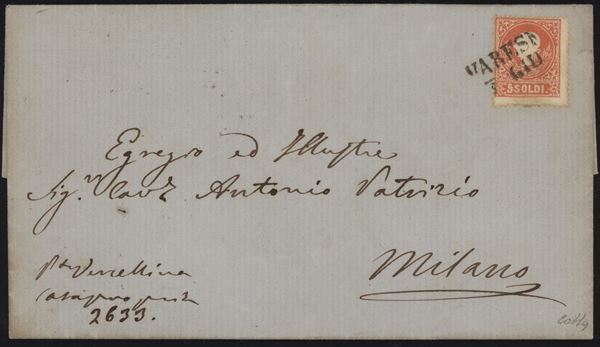 VARESE
GIU
5 SOLDI
Egregio ed Illustre
Sig.r Cav.r Antonio Patrizio
Milano
P.ta Vercellina
casa propria
2633.